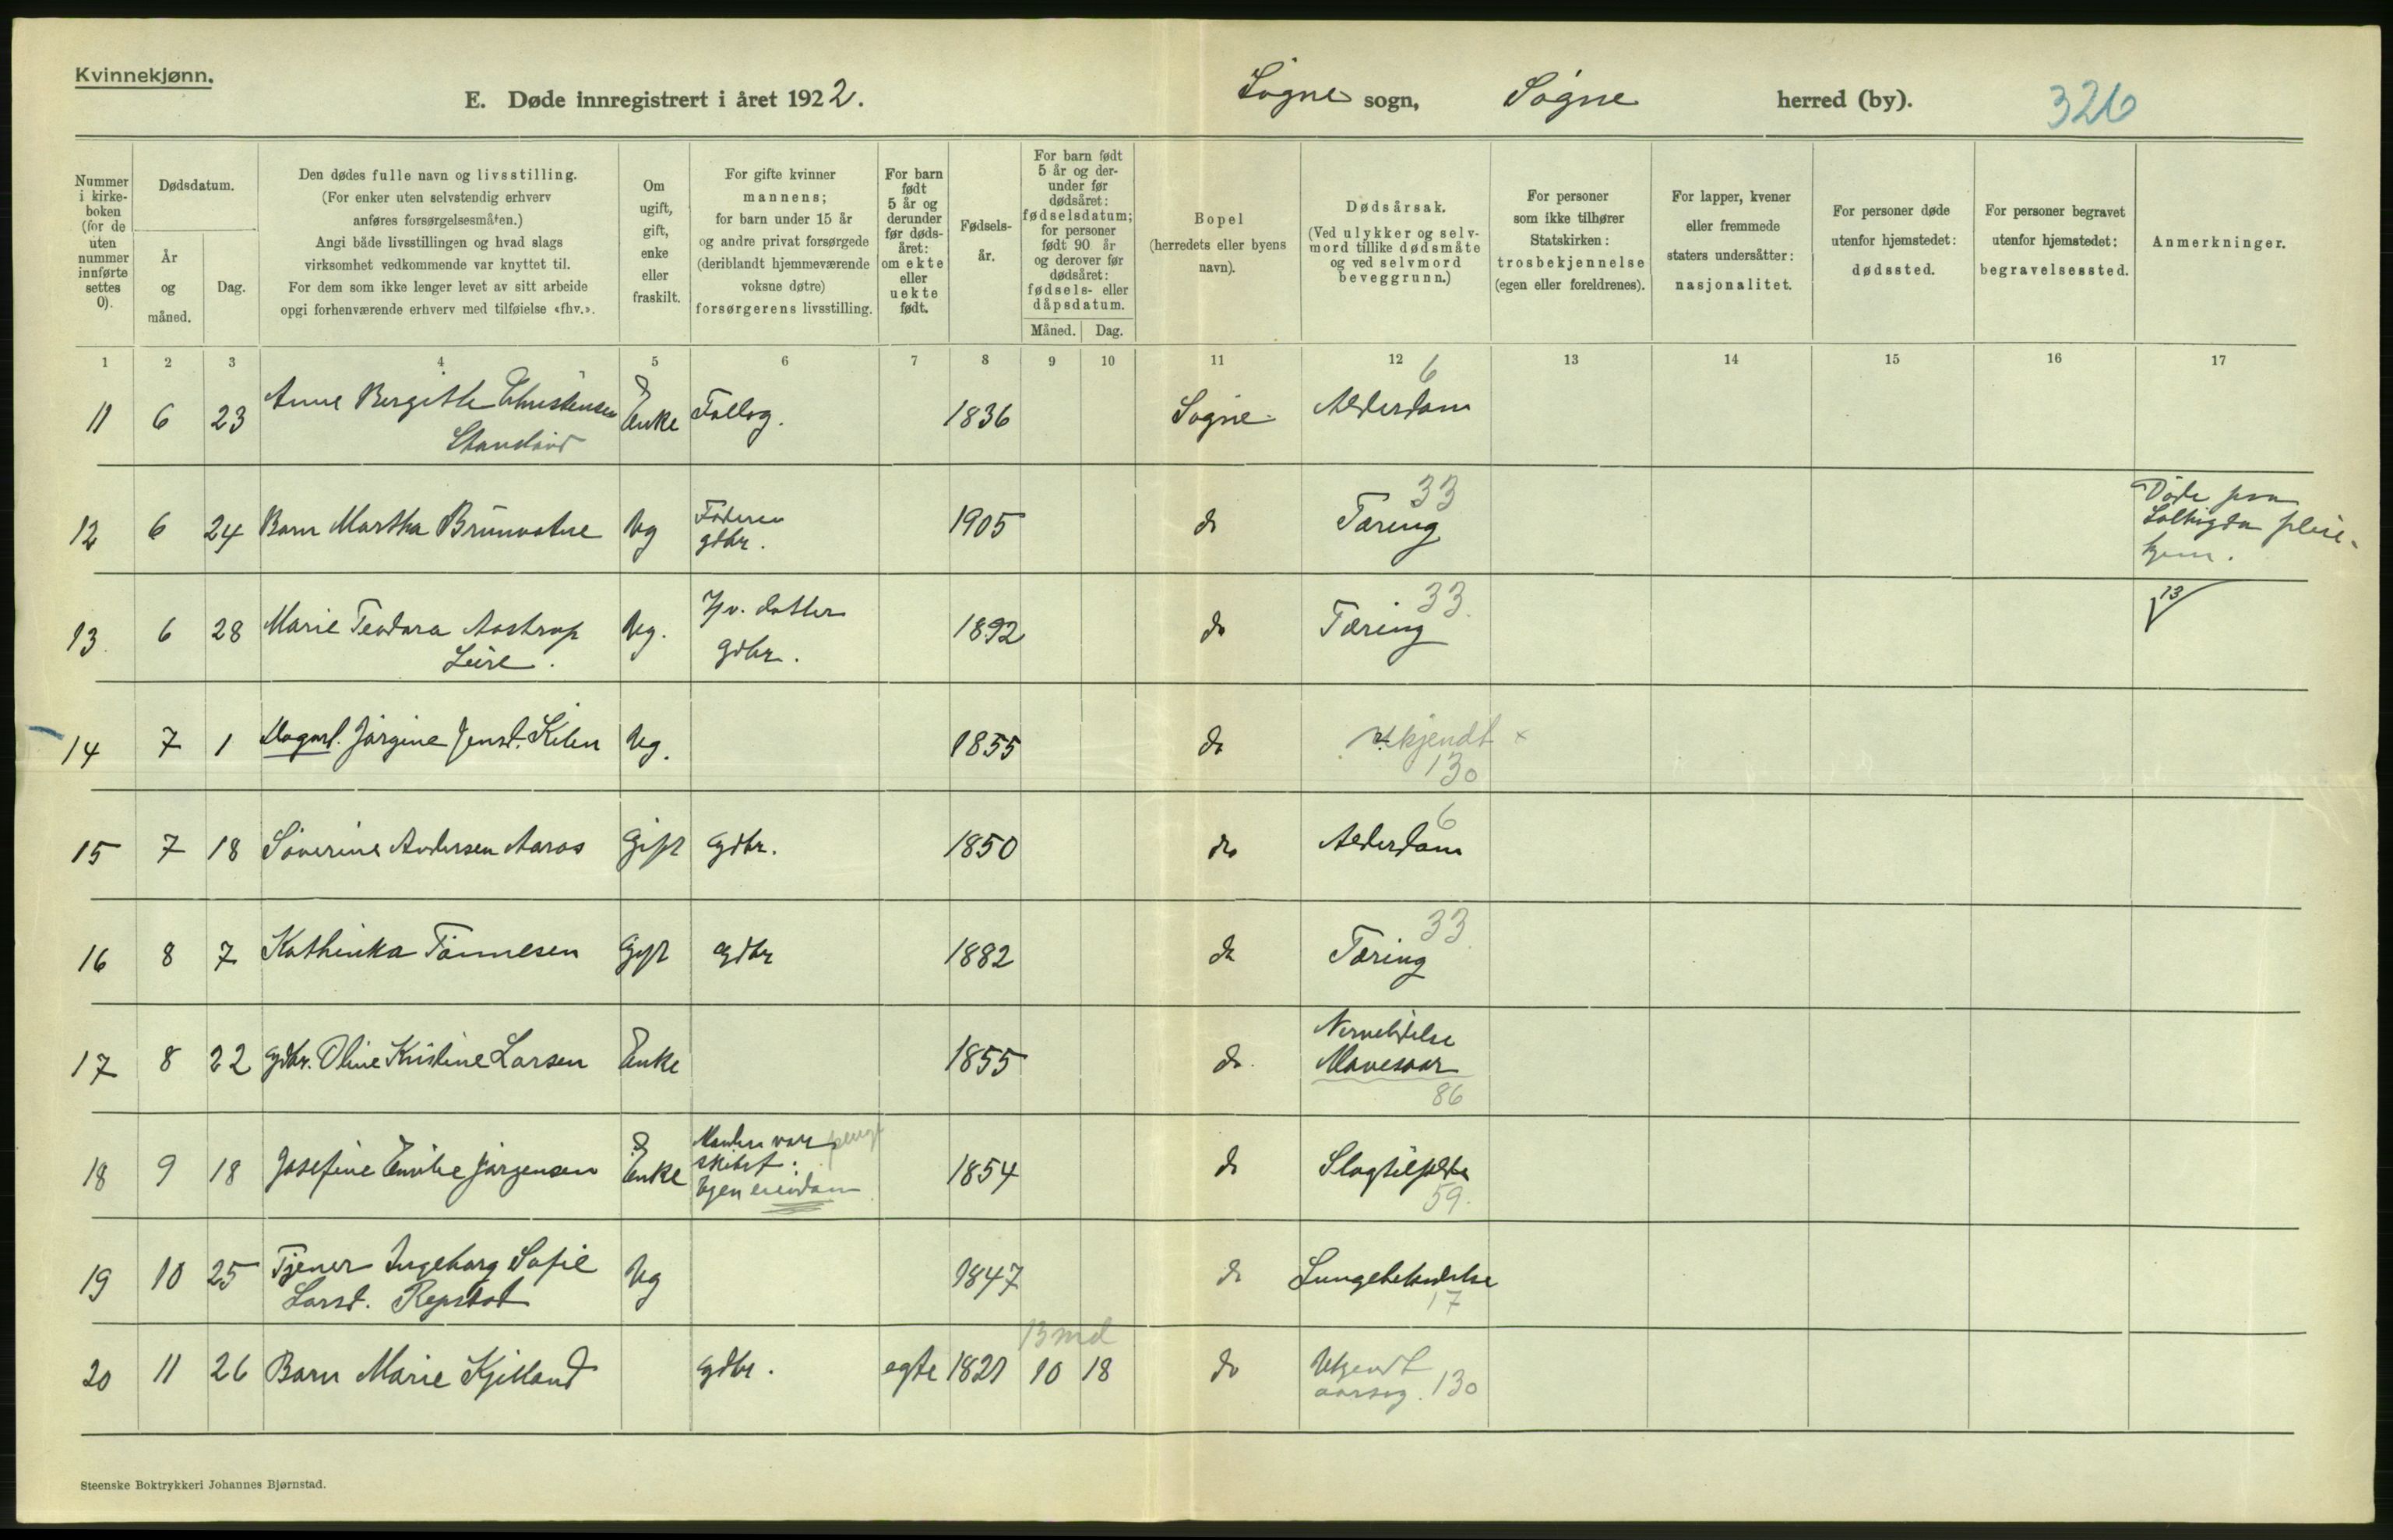 Kvinnekjønn.
E. Døde innregistrert i året 1922.
Søgne sogn, Søgne herred (by). 326
Nummer i kirkeboken (for de uten nummer innførte settes 0).
Dødsdatum.
År og måned.
Dag.
Den dødes fulle navn og livsstilling.
(For enker uten selvstendig erhverv
anføres forsørgelsesmåten.)
Angi både livsstillingen og hvad slags
virksomhet vedkommende var knyttet til.
For dem som ikke lenger levet av sitt arbeide
opgi forhenværende erhverv med tilføielse «fhv.».
Om ugift, gift, enke eller fraskilt.
For gifte kvinner
mannens;
for barn under 15 år
og andre privat forsørgede
(deriblandt hjemmeværende
voksne døtre)
forsørgerens livsstilling.
For barn født 5 år og derunder før dødsåret: om ekte eller uekte født.
Fødselsår.
For barn født 5 år og derunder før dødsåret: fødselsdatum; for personer født 90 år og derover før dødsåret: fødsels- eller dåpsdatum.
Måned. Dag.
Bopel
(herredets eller byens
navn).
Dødsårsak.
(Ved ulykker og selvmord tillike dødsmåte
og ved selvmord
beveggrunn.)
For personer
som ikke tilhører
Statskirken:
trosbekjennelse
(egen eller foreldrenes).
For lapper, kvener
eller fremmede
staters undersåtter:
nasjonalitet.
For personer døde
utenfor hjemstedet:
dødssted.
For personer begravet
utenfor hjemstedet:
begravelsessted.
Anmerkninger.
1 2 3 4 5 6 7 8 9 10 11 12 13 14 15 16 17
11 6 23 Anne Bergitte Christensen Enke 1836 Søgne Alderdom 6
12 6 24 Barn Martha Brünvatne Ug Faderen gdbr. 1905 do Tæring 33 Døde paa
13 6 28 Marie Teodora Aastrup Ug. Hv. datter gdbr. 1892 do Tæring 33
Leire. 13
14 7 1 Dagarb. Jørgine Jensd. Kilen Ug. 1855 do Ukjendt x 130
15 7 18 Søverine Andersen Aaros Gift gdbr. 1850 do Alderdom 6
16 8 7 Kathinka Tønnesen Gift gdbr 1882 do Tæring 33
17 8 22 gdbr. Oline Kristine Larsen Enke 1855 do. Nervelidelse
Mavesaar
86
18 9 18 Josefine Emilie Jørgensen Enke Manden var
skibsf.
Egen eiendom 1854 do Slagtilfælde
59.
19 10 25 Tjener Ingeborg Sofie Ug 1847 do Lungebetændelse
Larsd. Repstad 17
20 11 26 Barn Marie Kjelland gdbr. egte 1821 13 md 10 18 do Ukjendt
aarsag. 130
Steenske Boktrykkeri Johannes Bjørnstad.